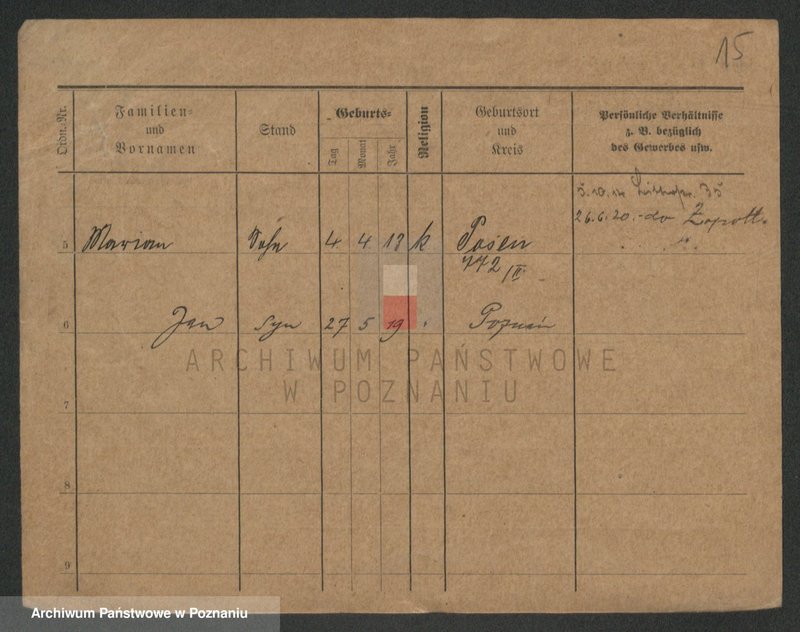 15
Ordn.-Nr.
Familien-
und
Vornamen
Stand
Geburts-
Tag
Monat
Jahr
Religion
Geburtsort
und
Kreis
Persönliche Verhältnisse
z. B. bezüglich
des Gewerbes usw.
35
26.6.20.- do Zopott.
5 Marian Sohn 4 4 13 k Posen
772/II
6 Jan syn 27 5 19 Poznań
7
8
9
ARCHIWUM PAŃSTWOWE
W POZNANIU
Archiwum Państwowe w Poznaniu